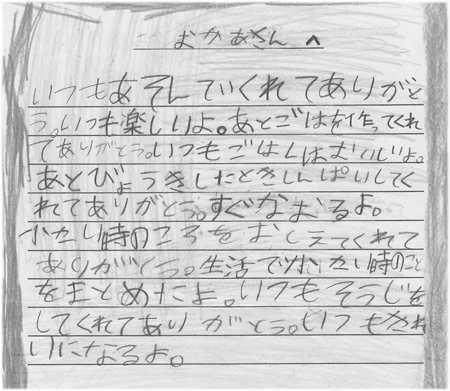 おかあさん へ
いつもあそんでいくれてありがと
う。いつも楽しいよ。あとごはを作ってくれ
てありがとう。いつもごはんはおいしいよ。
あとびょうきしたときしんぱいしてく
れてありがとう。すぐなおるよ。
小さい時のころをおしえてくれて
ありがとう。生活で小さい時のこと
をまとめたよ。いつもそうじを
してくれてありがとう。いつもきれ
いになるよ。